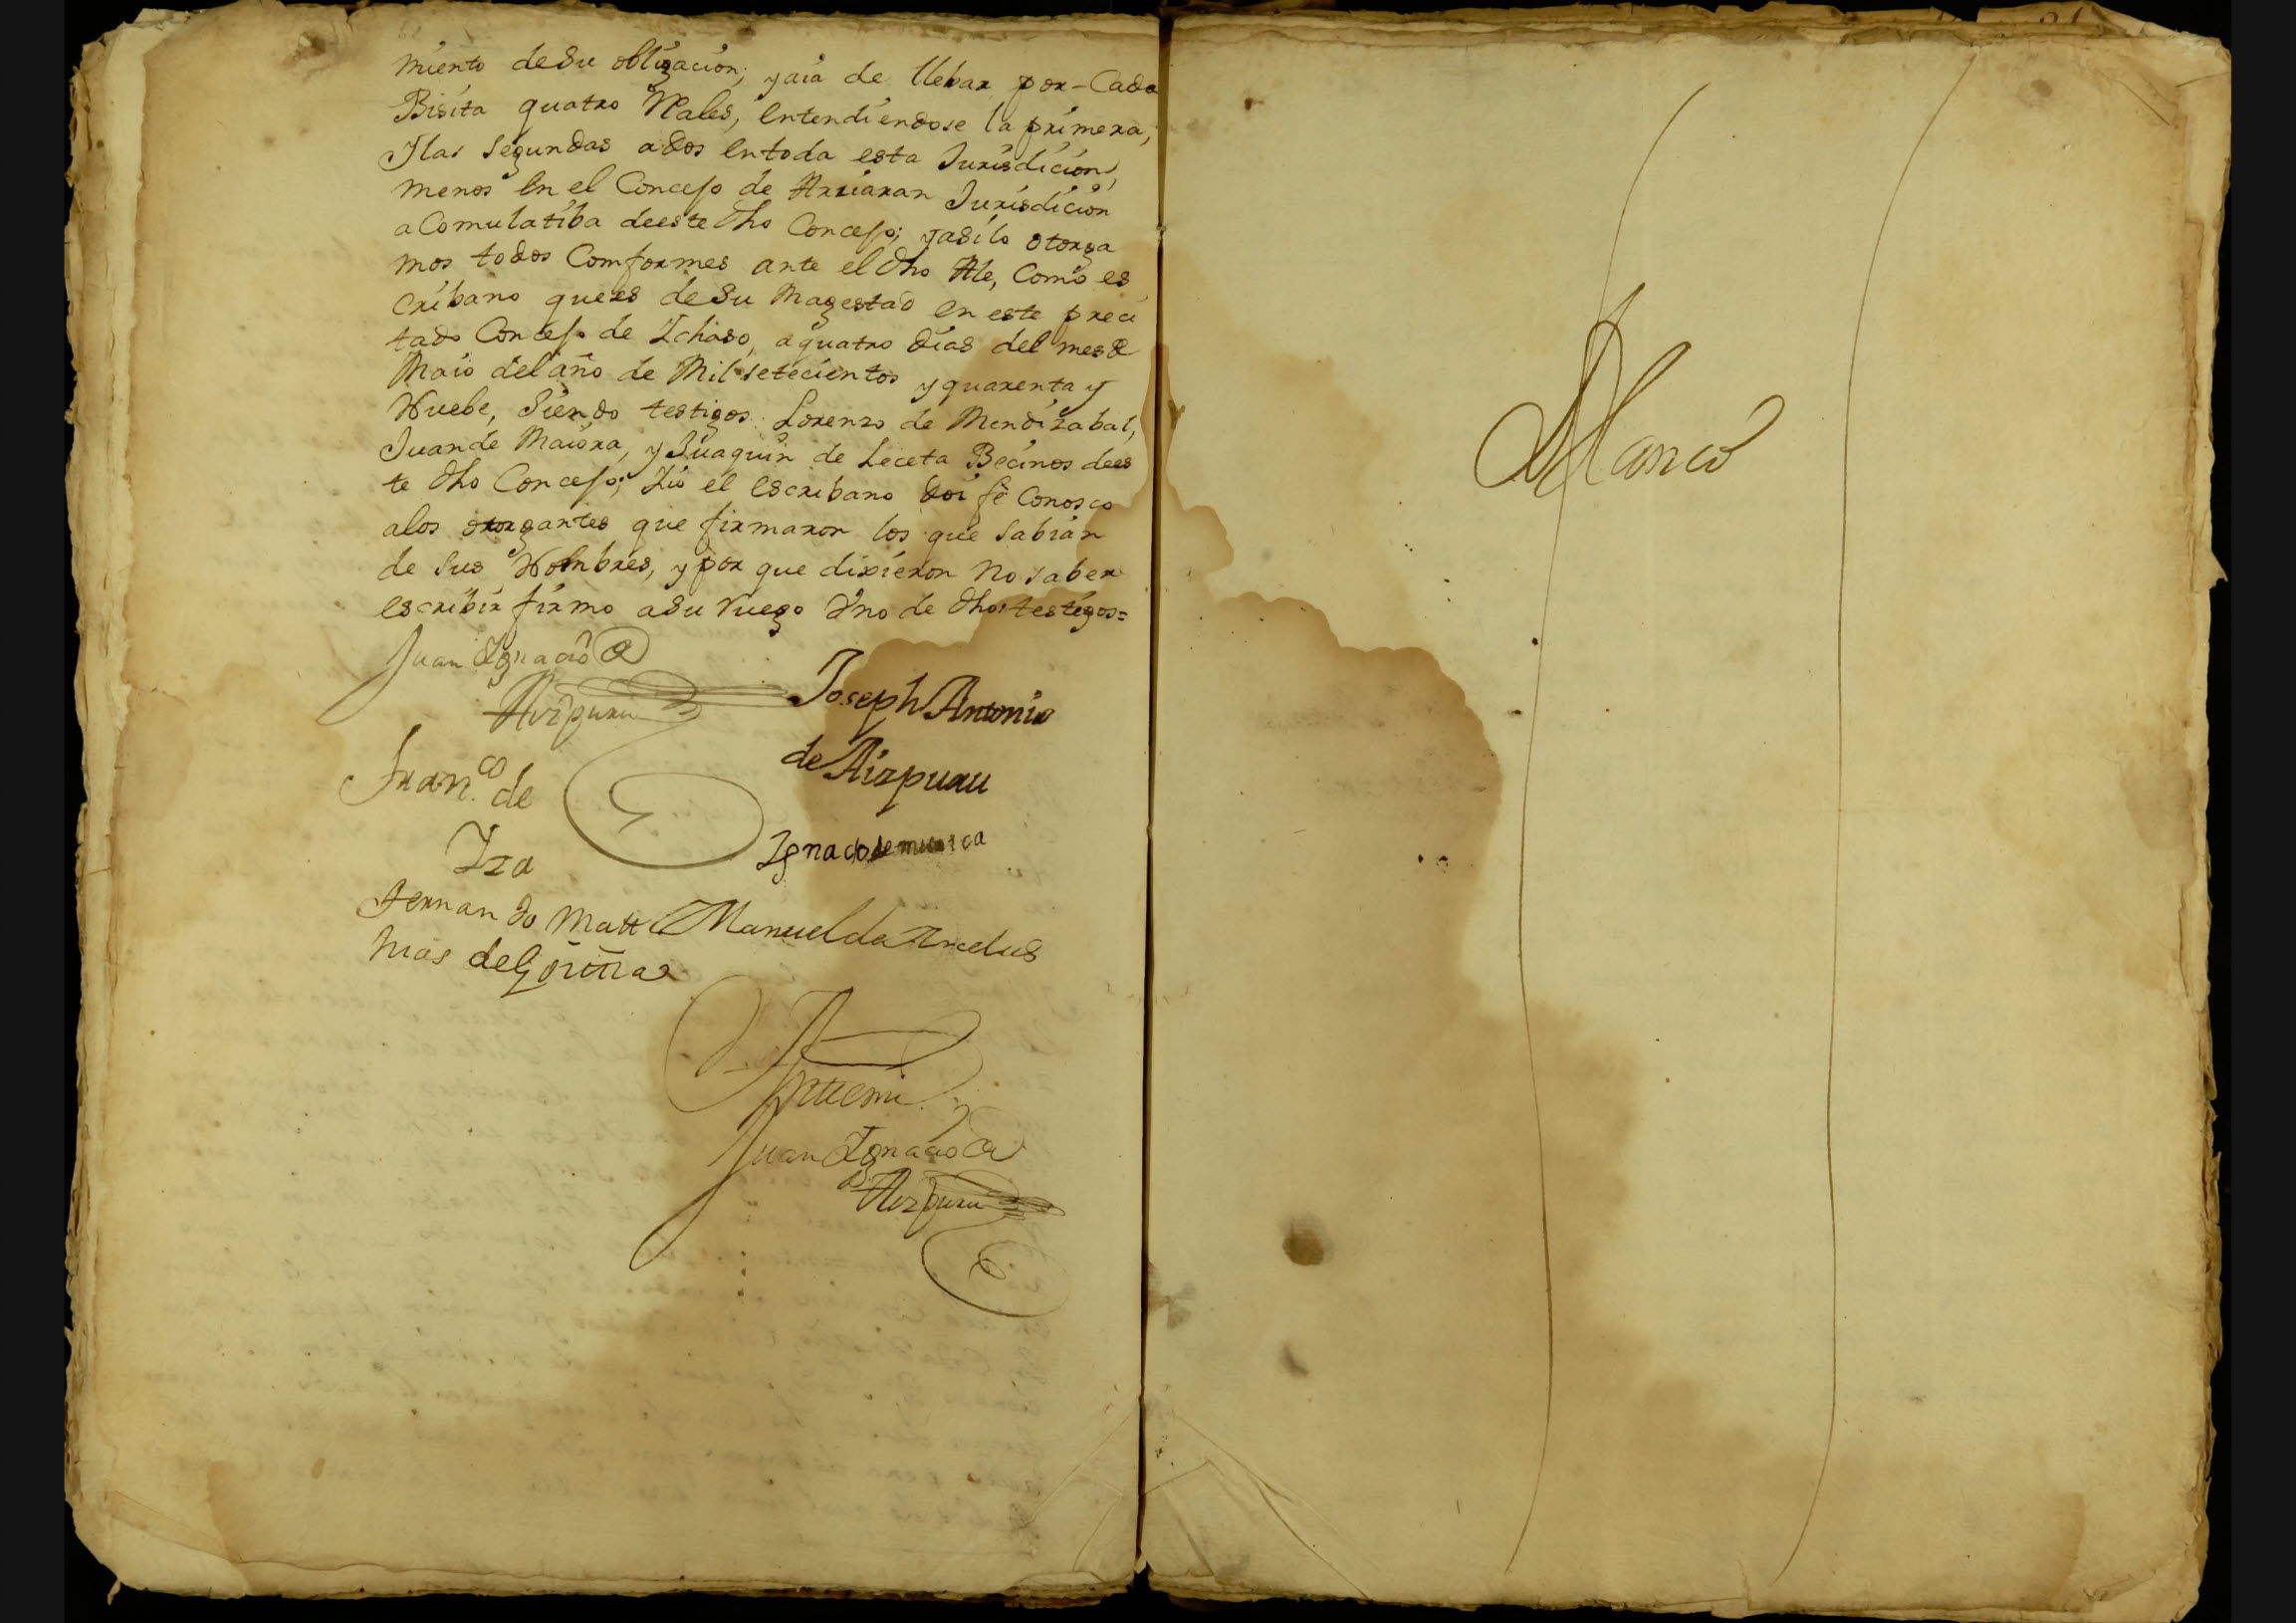 miento de Su obligacion; y aia de llebar por-Cada
Bisita quatro Rales, entendiendose la primera,
Ylas segundas ados entoda esta Jurisdicion,
menos en el Concejo de Arriaran Jurisdicion
acomulatiba deeste dho Concejo; yasilo otorga
mos todos Comformes ante el dho Ale, Como es
cribano quees de Su Magestad en este preci
tado Concejo de Ichaso, aquatro dias del mes de
Maio del año de Mil setecientos y quarenta y
Nuebe, Siendo testigos Lorenzo de Mendizabal,
Juande Maiora, y Juaquin de Leceta Becinos dees
te dho Concejo; Yio el escribano doi fé Conosco
alos otorgantes que firmaron los que Sabian
de Sus Nombres, y por que dixieron No saber
escribir firmo aSu ruego Vno de dhos testigos=
Juan Ignacio de
Aizpuru
Joseph Antonio
de Aizpuru
Fran.co de
Yza
Ignacio de mujica
Fernando Matt
hias de Goitia
Manuel de Arcelus
Antemi
Juan Ignacio de
Aizpuru
Blanco